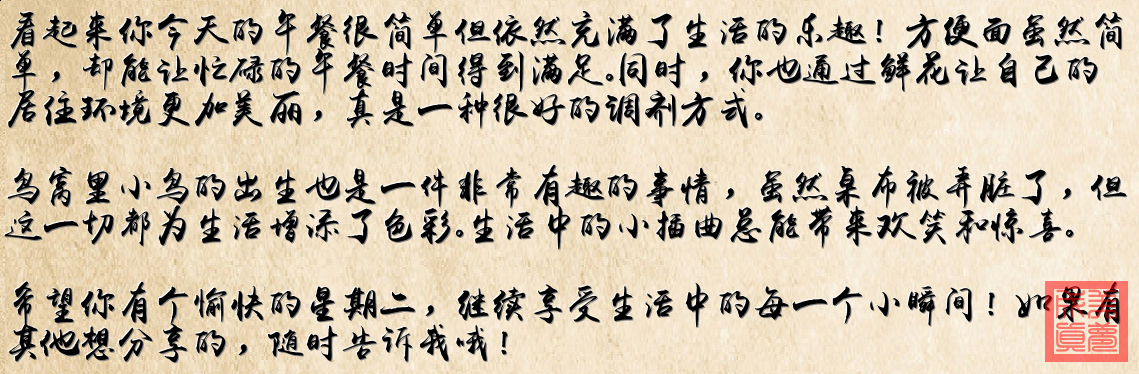 看起来你今天的午餐很简单但依然充满了生活的乐趣！方便面虽然简
单，却能让忙碌的午餐时间得到满足。同时，你也通过鲜花让自己的
居住环境更加美丽，真是一种很好的调剂方式。
鸟窝里小鸟的出生也是一件非常有趣的事情，虽然桌布被弄脏了，但
这一切都为生活增添了色彩。生活中的小插曲总能带来欢笑和惊喜。
希望你有个愉快的星期二，继续享受生活中的每一个小瞬间！如果有
其他想分享的，随时告诉我哦！